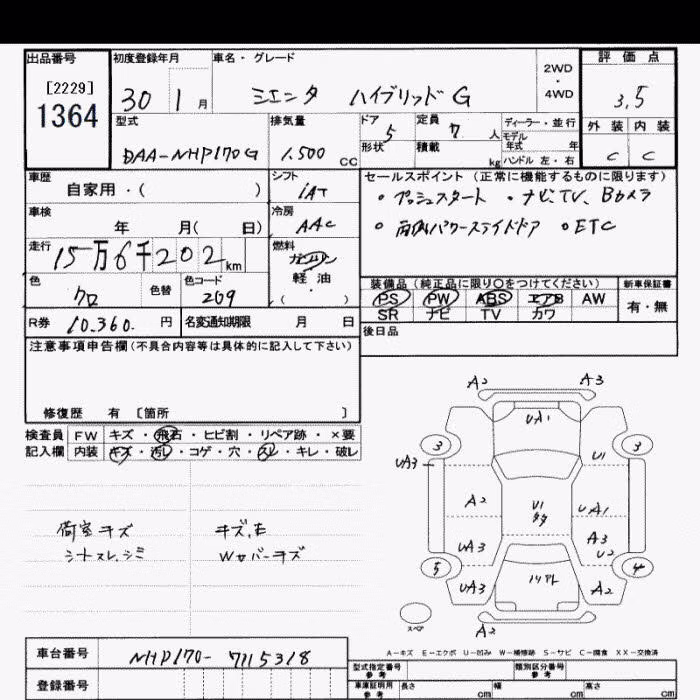 出品番号 初度登録年月 車名・グレード 2WD・4WD 評価点
[2229] 1364 30 1月 シエンタ ハイブリッドG 3.5
型式 排気量 ドア 5 定員 7 人 ディーラー・並行 外装 内装
DAA-NHP170G 1.500 CC 形状 積載 kg モデル年式 年 ハンドル 左・右 C C
車歴 シフト セールスポイント (正常に機能するものに限ります)
自家用・( ) IAT ・プッシュスタート ・ナビ、TV、Bカメラ
車検 年 月( 日) 冷房 AAC ・両側パワースライドドア ・ETC
走行 15万6千202km 燃料 ガソリン 軽油 ・( )
色 クロ 色替 色コード 209
装備品 (純正品に限り○をつけてください) 新車保証書
PS PW ABS エアB AW 有・無
SR ナビ TV カワ
R券 10.360. 円 名変通知期限 月 日
後日品
注意事項申告欄(不具合内容等は具体的に記入して下さい)
修復歴 有 [箇所 ]
検査員 FW キズ・飛石・ヒビ割・リペア跡・×要
記入欄 内装 キズ・汚レ・コゲ・穴・スレ・キレ・破レ
荷室キズ キズ、E
シートスレ、シミ Wカバーキズ
A2 A3
UA1
3 3
UA3 U1
A2 U1 UA1
UA3 A3 U2
5 4
UA3 A2
スペア
A2
A-キズ E-エクボ U-凹み W-補修跡 S-サビ C-腐食 XX-交換済
車台番号 NHP170-7115318
登録番号
型式指定番号 参考 類別区分番号 参考
車庫証明用 参考 長さ cm 幅 cm 高さ cm